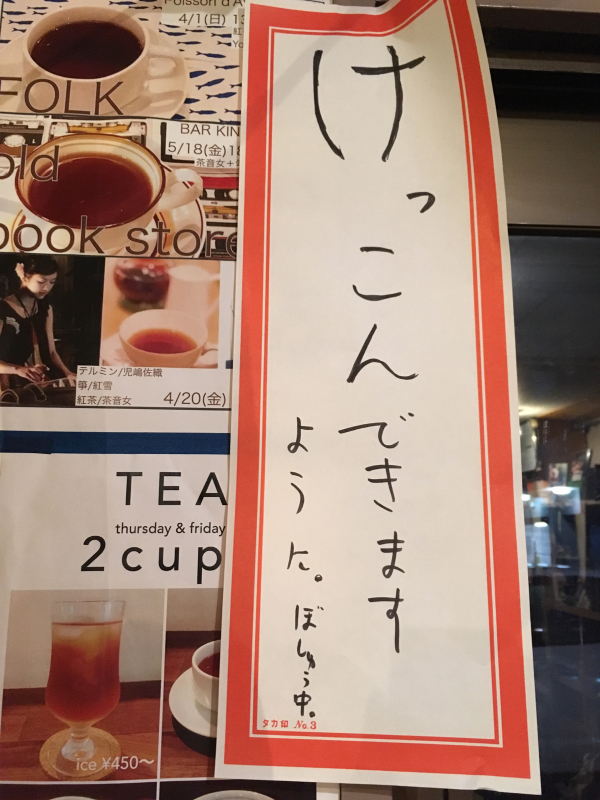 Poisson d'A
4/1(日) 13
FOLK
BAR KIN
5/18(金)18
茶音女+
old
book store
テルミン/児嶋佐織
箏/紅雪
紅茶/茶音女
4/20(金)
TEA
thursday & friday
2cup
ice ¥450〜
けっこんできます
ように。ぼしゅう中。
タカ印 No.3